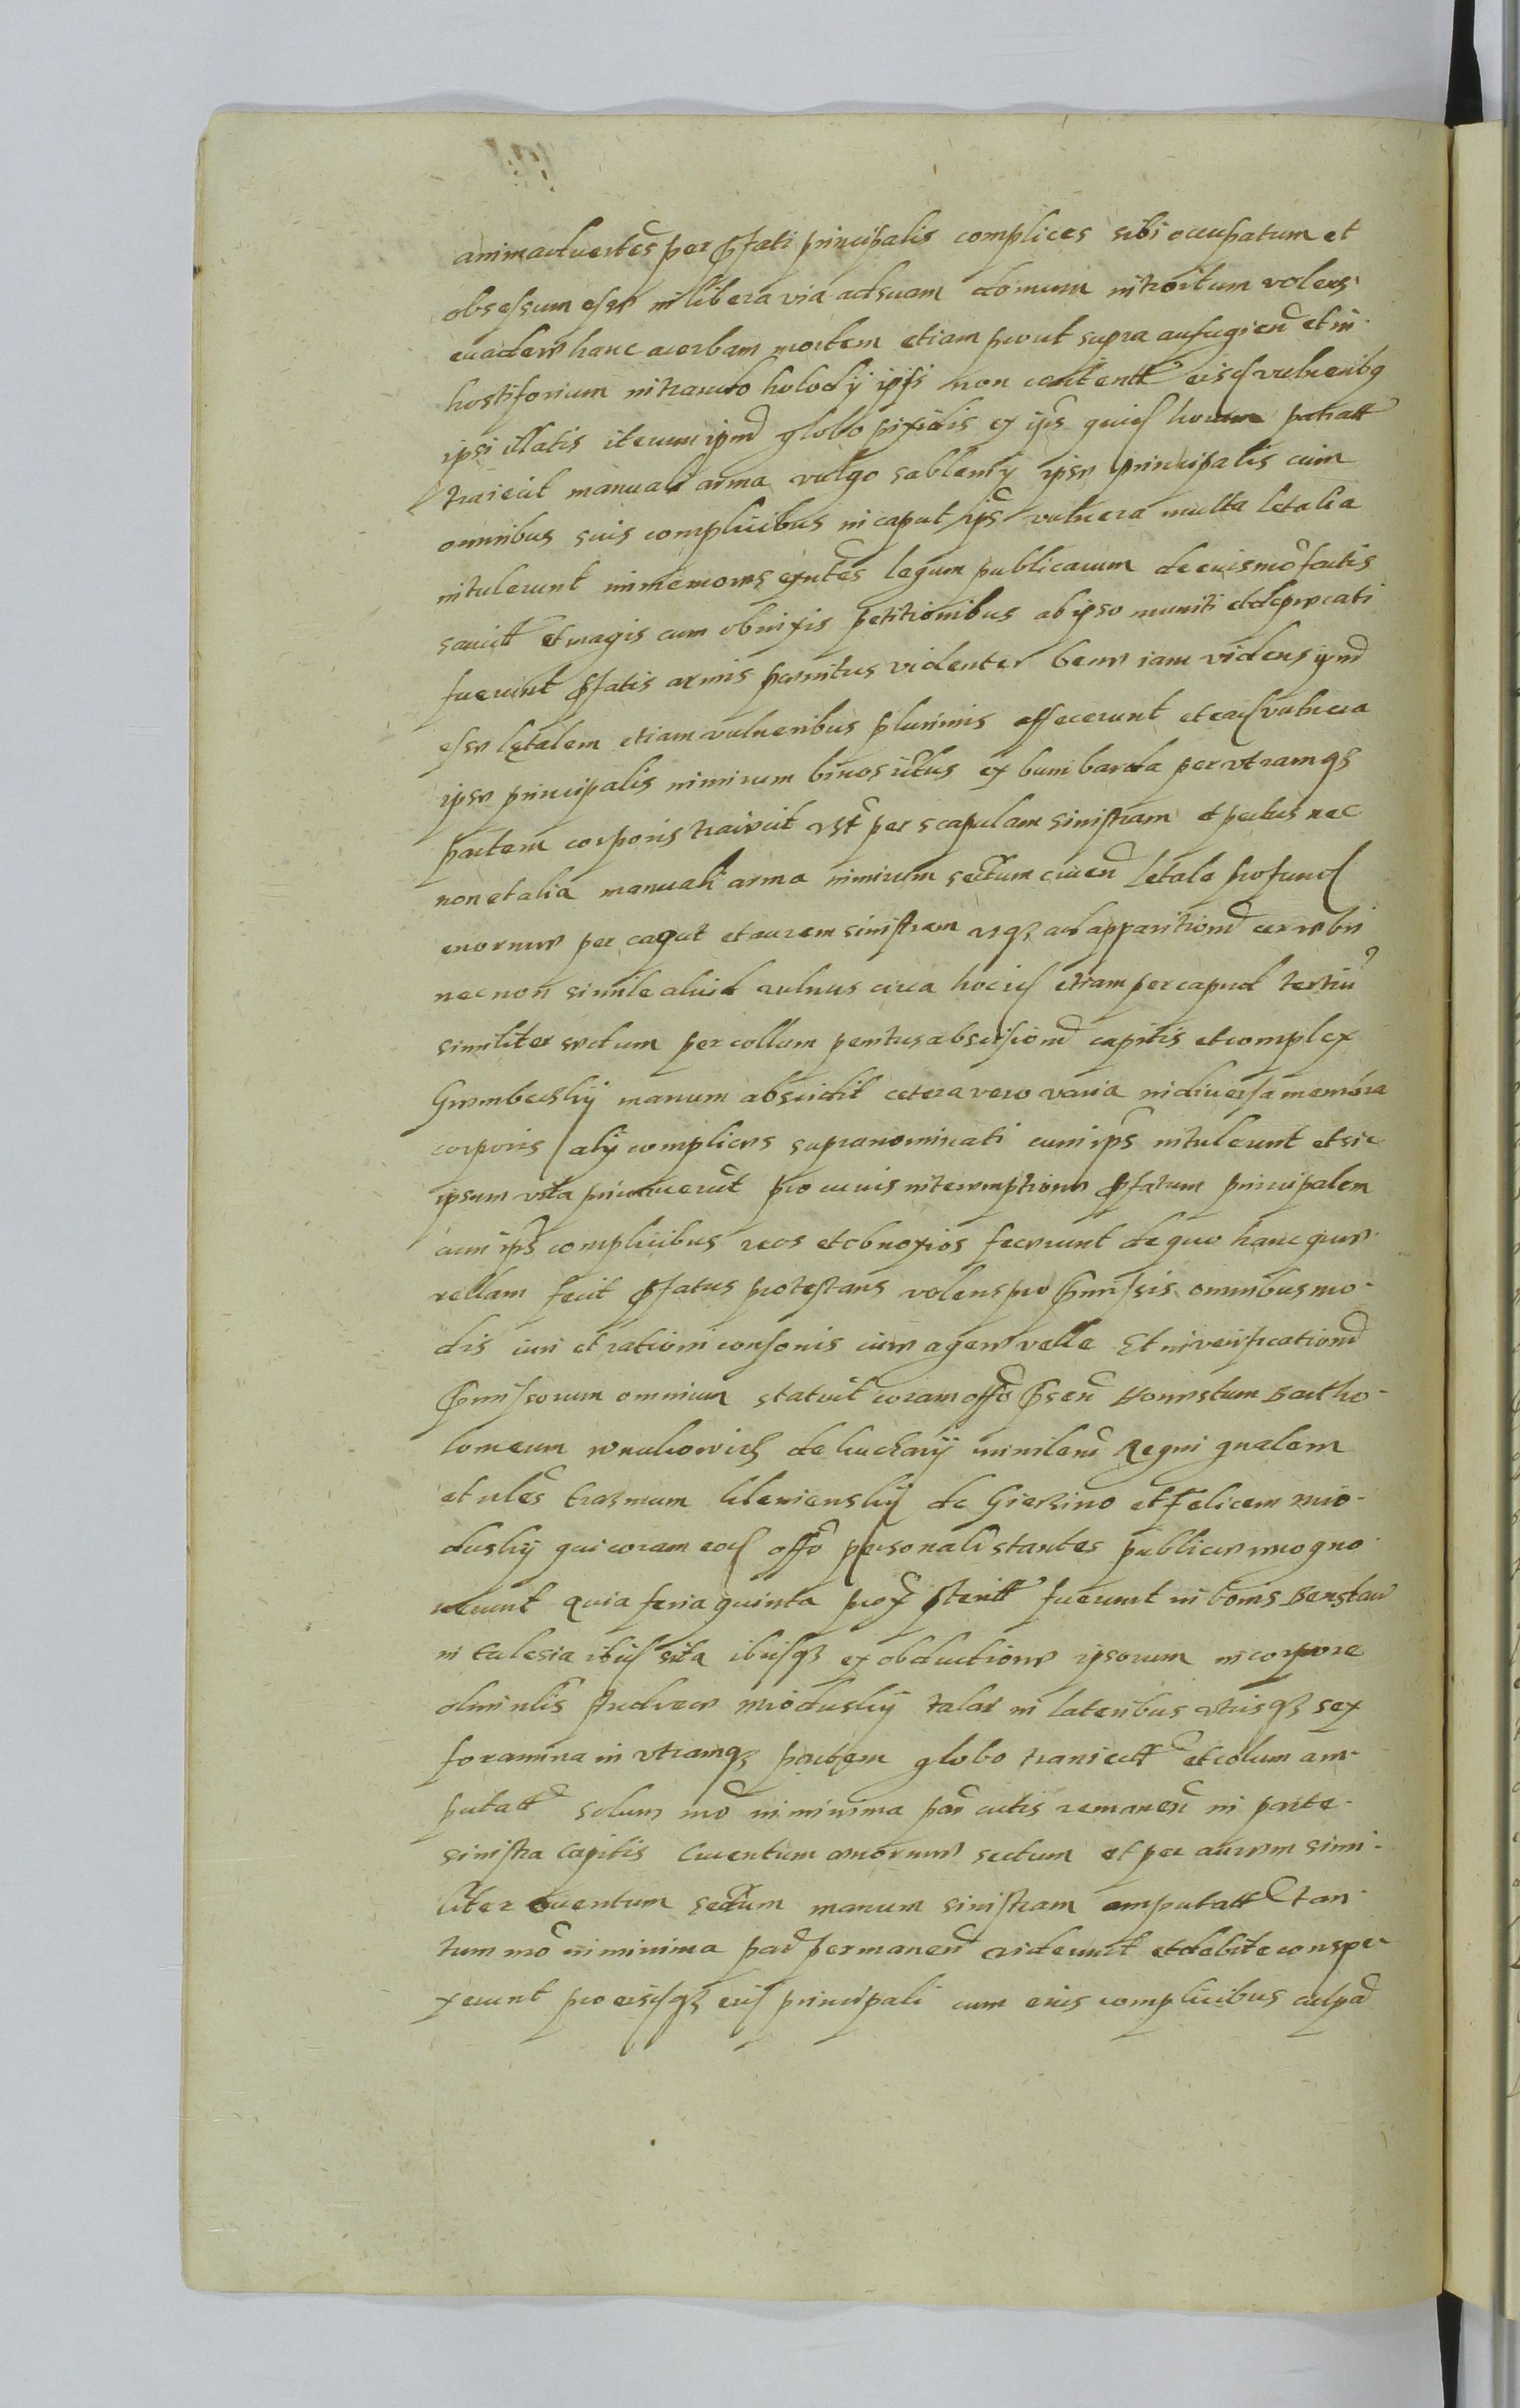 animaduertēs per p̄fati principalis complices sibi occupatum et
obsessum esse in libera via ad suam domum introitum volens
euadere hanc acerbam mortem etiam prout supra aufugien̄ et in
hostiforium intrando ipsi non content̄ eisd vulneribq
ipsi illatis iterum ipm̄ globo pixidis ex ip̄s quid horum patratt̄
traiecit manuali arma vulgo sablensy ipse principalis cum
omnibus suis complicibus in caput ips̄ vulnera multa letalia
intulerunt immemores exn̄tes legum publicarum de euismō factis
sancitt̄ et magis cum obnixis petitionibus ab ipso muniti et deprecati
fuerunt p̄fatis armis penitus videnter bene iam videns ipm̄
esse lętalem etiam vulneribus plurimis affecerunt et ead vulnera
ipse principalis nimirum binos ictus ex bumbarda per vtramqʒ
partem corporis traiecit vſt̄ per scapulam sinistram et pectus nec
non et alia manuali arma nimirum sectum cruen̄ letale profund
enorme per caput et aurem sinistram vsqʒ ad apparitionē cerebri
nec non simile aliud vulnus circa hocid etiam per capud tertiū
similiter sectum per collum penitus abscisionē capitis et complex
Grembeczky manum abscidit cetera vero varia in diuersa membra
corporis alij complices supranominati cum ips̄ intulerunt et sic
ipsum vita priuauerūt pro cuius interemptione p̄fatum principalem
cum ips̄ complicibus reos et obnoxios fecerunt de quo hanc quae-
rellam fecit p̄fatus protestans volens pro p̄missis omnibus mo-
dis iuri et rationi consonis iure agere velle Et in verificationē
p̄missorum omnium statuit coram offō p̄sen̄ Honestum Bartho-
lomeum ministerī Regni gn̄alem
et nlēs Erasmum de et Felicem Mio-
dusky qui coram eod offō personalr̄ stantes publice recogno
uerunt Quia feria quinta prox p̄teritt̄ fuerunt in bonis
in Eclesia ibid sita ibidqʒ ex obductione ipsorum in corpore
olim nlīs Andreae Miodusky talar in lateribus vtrisqʒ sex
foramina in vtramqʒ partem globo traiectt̄ et colum am-
putatt̄ solum mō in minima par̄ cutis remanen̄ in parte
sinistra capitis Cruentum enorme sectum et per aurem simi-
liter cruentum sectum manum sinistram amputatt̄ tan-
tum mō in minima par̄ permanen̄ viderunt et debite conspe-
xerunt pro eisdqʒ eid principali cum eius complicibus culpā